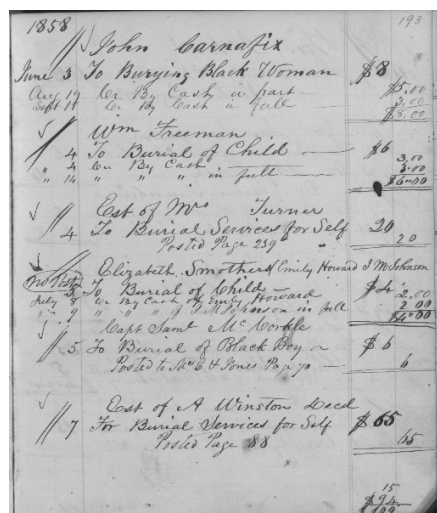 1858 193
John Carnafix
June 3 To Burying Black Woman $8
Aug 19 Cr By Cash in part $5.00
Sept 11 Cr By Cash in full 3.00
$8.00
Wm Freeman
4 To Burial of Child $6
" 4 Cr By Cash 3.00
" 14 " " " in full 3.00
$6.00
Est of Mrs Turner
4 To Burial Services for Self 20
Posted Page 259 20
Elizabeth Smothers Emily Howard J M Johnson
To Burial of Child $4
July 8 Cr By Cash of Emily Howard 2.00
" 9 " " " in full 2.00
$4.00
Capt Saml McCorkle
5 To Burial of Black Boy $6
Posted to Mrs E H Jones Page 70 6
Est of A Winston Decd
7 For Burial Services for Self $65
Posted Page 88 65
15
$94
109